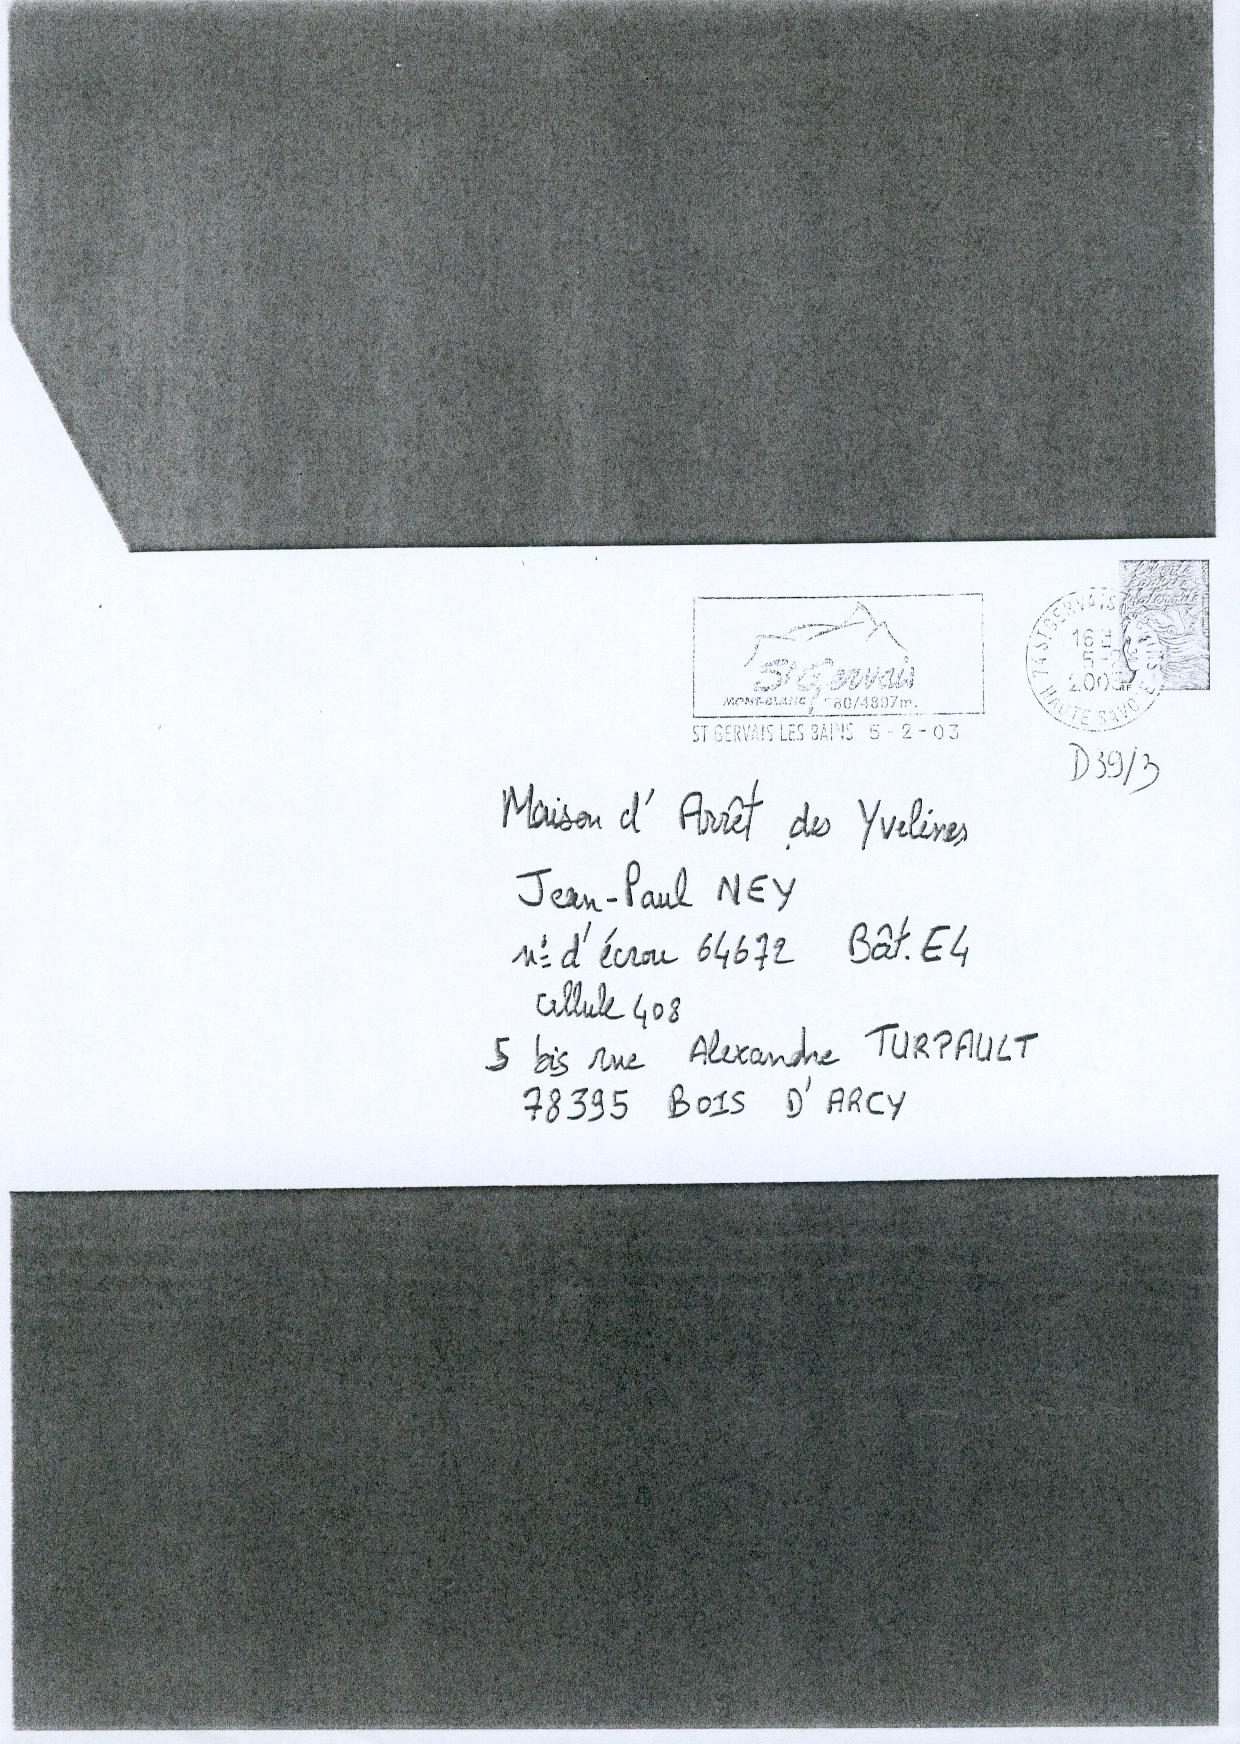 Liberté
St Gervais
MONT-BLANC 580/4807m.
ST GERVAIS LES BAINS 5-2-03
74 ST GERVAIS
16H
5-2
2003
HAUTE SAVOIE
RF
D39/3
Maison d'Arrêt des Yvelines
Jean-Paul NEY
n° d'écrou 64672 Bât. E4
cellule 408
5 bis rue Alexandre TURPAULT
78395 BOIS D'ARCY